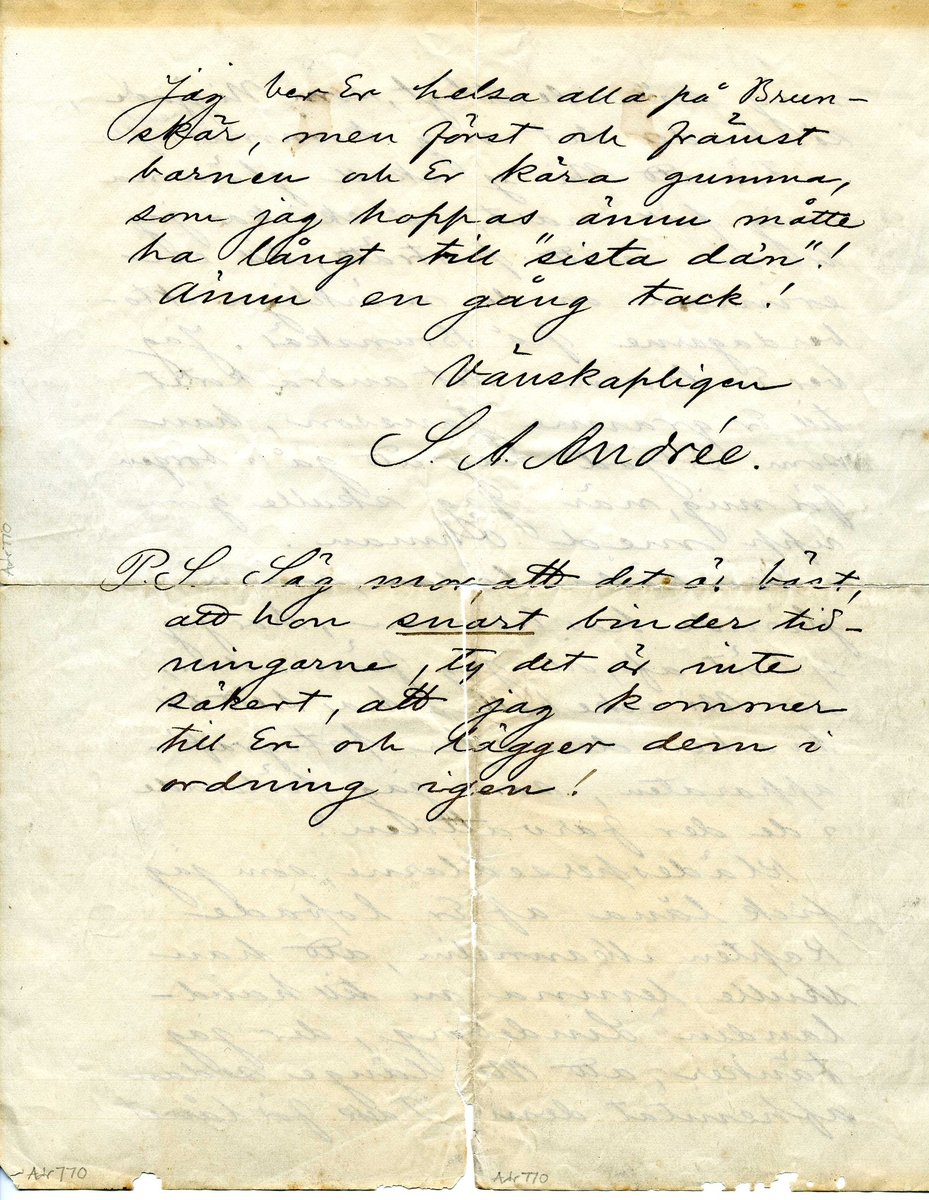 Jag ber Er helsa alla på Brun-
skär, men först och främst
barnen och Er kära gumma,
som jag hoppas ännu måtte
ha långt till "sista dän"!
Ännu en gång tack!
Vänskapligen
S. A. Andrée.
P.S. Säg mor att det är bäst,
att hon snart binder tid-
ningarne, ty det är inte
säkert, att jag kommer
till Er och lägger dem i
ordning igen!
A4r770
A4r770
A4r770